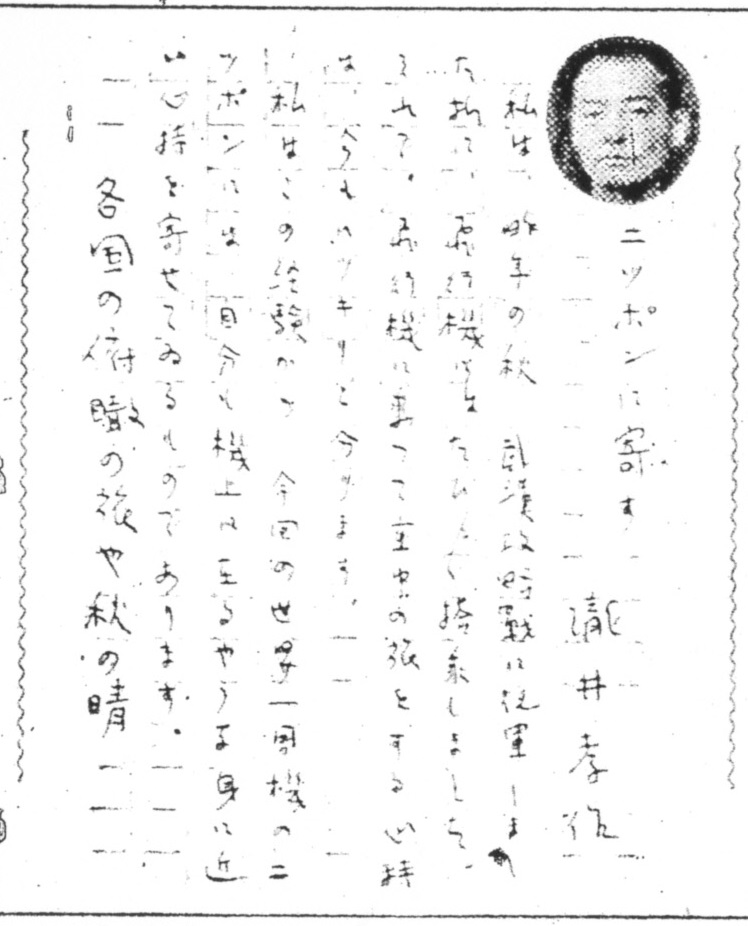 ニッポンに寄す
瀧井孝作
私は、昨年の秋 武漢攻略戦に従軍しまし
た折に、飛行機にはたびたび搭乗しました。
それで、飛行機に乗つて空中の旅をする心持
は、今もハツキリと分ります。
私はこの経験から 今回の世界一周機のニ
ツポンには、自分も機上に在るやうな身に近
い心持を寄せてゐるものであります。
各国の俯瞰の旅や秋の晴